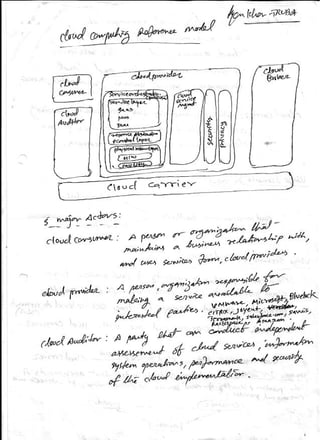 cloud computing Reference model
cloud consumer
cloud Auditor
cloud provider
service orchestration
service layer
SaaS
PaaS
IaaS
resource abstraction
control layer
physical resource layer
H/W
facilities
cloud service mgmt
security
privacy
cloud Broker
cloud carrier
5 major Actors:
cloud consumer: A person or organization that
maintains a business relationship with,
and uses services from, cloud providers.
cloud provider: A person, organization responsible for
making a service available to
interested parties. VMware, Microsoft, Bluelock
citrix, joyent,
salesforce.com,
Rackspace, Amazon
cloud Auditor: A party that can conduct independent
assessment of cloud services, information
system operations, performance and security
of the cloud implementation.